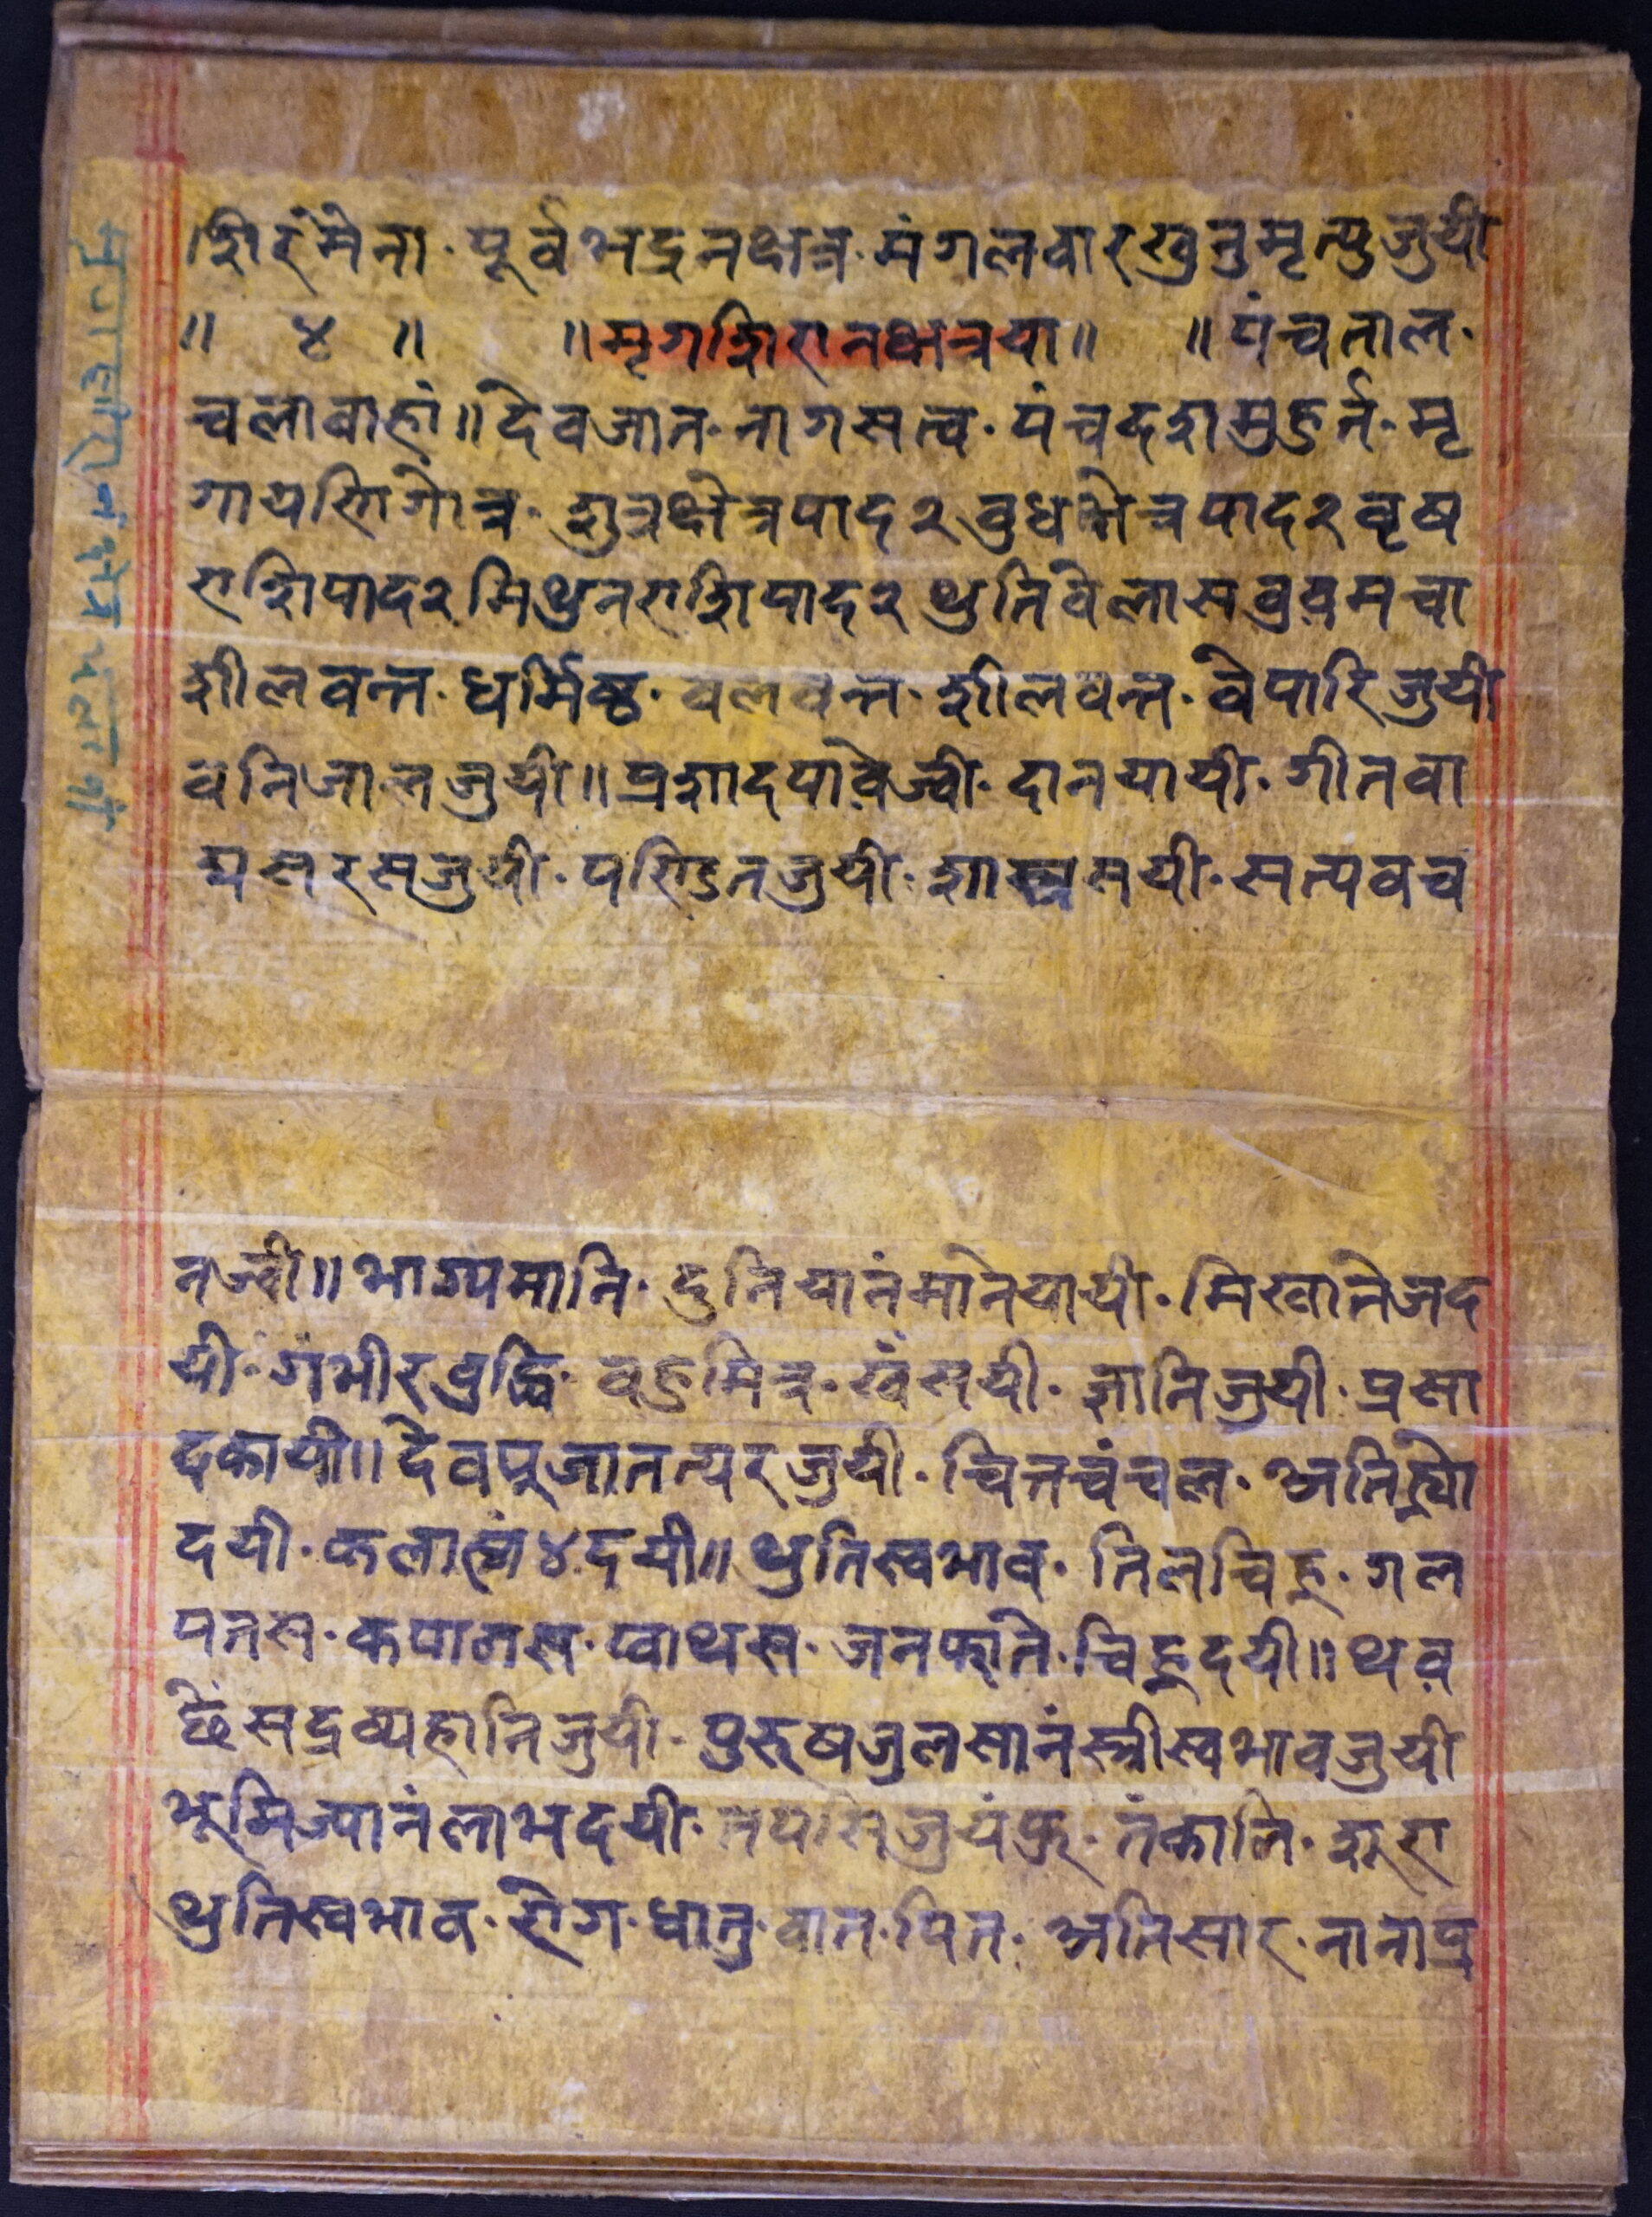 शिरंमेना · पूर्वभद्रनक्षत्र · मंगलवारखुनुमृत्युजुयी
॥ ४ ॥ ॥ मृगशिरानक्षत्रया ॥ ॥ पंचताल ·
चलावाहां ॥ देवजात · नागसत्व · पंचदशमुहुर्त्त · मृ
गायणिगोत्र · शुत्रक्षेत्रपाद२ वुधक्षेत्रपाद२ वृष
राशिपाद२ मिथुनराशिपाद२ थुतिवेलासवुव़मचा
शीलवन्त · धर्मिष्ठ · वलवन्त · शीलवन्त · वेपारिजुयी
वनिजालजुयी ॥ प्रशादपावेज्वी · दानयायी · गीतवा
द्यसरसजुयी · पण्डितजुयी · शास्त्रसयी · सत्यवच
नज्वी ॥ भाग्यमानि · दुनियानंमानेयायी · मिखातेजद
यी · गंभीरवुद्धि · वहुमित्र · खंसयी · ज्ञानिजुयी · प्रसा
दकायी ॥ देवपूजातत्परजुयी · चितचंचल ·
दयी · ४दयी ॥ थुतिस्वभाव · तिलचिह्न · गल
पतस · कपालस · प्वाथस · जनफाते · चिह्नदयी ॥ थव़
छेंसद्रव्यहानिजुयी · पुरूषजुलसानंस्त्रीस्वभावजुयी
भूमिज्यानंलाभदयी · तंकालि · शूरा
थुतिस्वभाव · रोग · धातु · वात · पित · अतिसार · नानाप्र